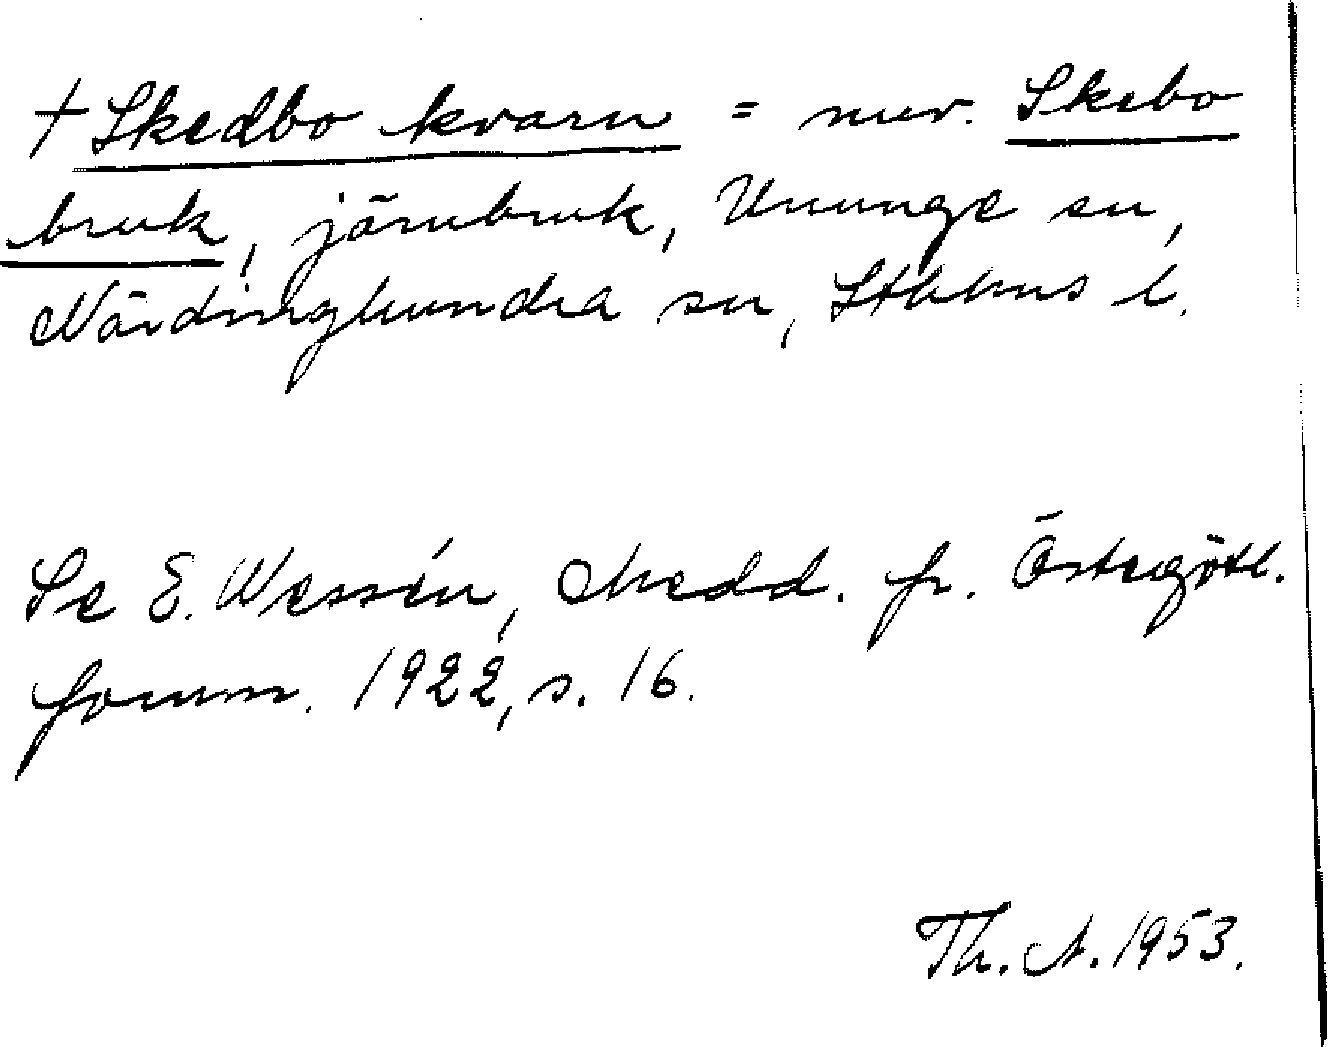 † Skedbo kvarn = nuv. Skebo
bruk, järnbruk, Ununge sn,
Närdinghundra sn, Sthlms l.
Se E. Wessén, Medd. fr. Östergötl.
fornm. 1922, s. 16.
Th. A. 1953.